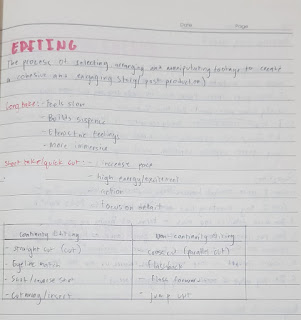 Date Page
EDITING
The process of selecting, arranging and manipulating footage to create
a cohesive and engaging story (post production)
Long take: - Feels slow
- Builds suspense
- Emotional feelings
- More immersive
Short take/quick cut: - increase pace
- high energy/excitement
- action
- focus on detail
Continuity Editing Non-continuity editing
- straight cut (cut) - cross cut (parallel cut)
- Eyeline match - Flashback
- Shot/reverse shot - Flash forward
- Cut away/insert - Jump cut